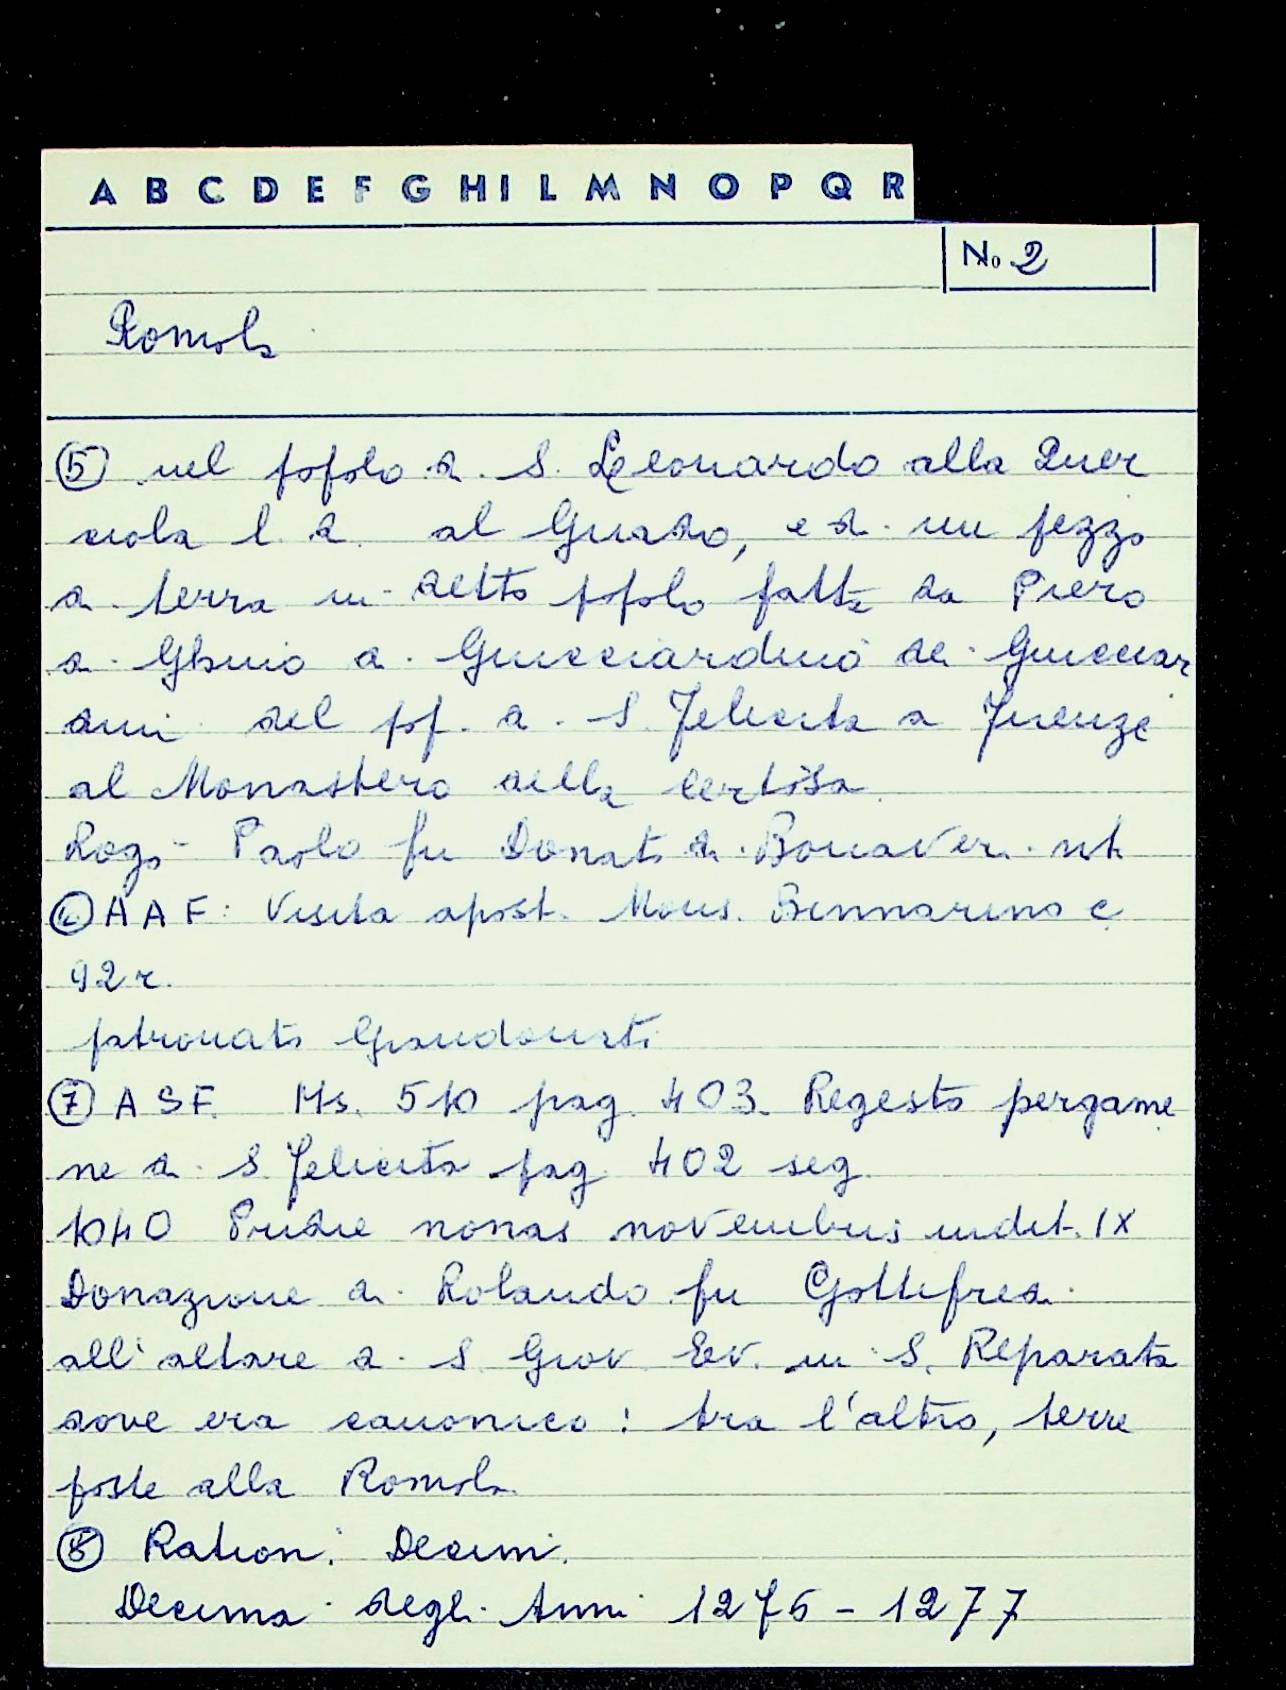 A B C D E F G H I L M N O P Q R
No. 2
Romola
5 nel popolo di S. Leonardo alla Quer
ciola l. d. al Guado, e di un pezzo
di terra in detto popolo fatta da Piero
di Ghino a Guicciardino dei Guicciar
dini del pop. di S. Felicita a Firenze
al Monastero della Certosa.
Rogò Paolo fu Donato di Bonaver. nt.
6 A A F: Visita apost. Mons. Binnarino c
92 r.
patronato Giandonati
7 A S F. Ms. 510 pag. 403. Regesto pergame
ne di S. Felicita pag. 402 seg.
1040 Pridie nonas novembris indit. IX
Donazione di Rolando fu Gottifredi
all'altare di S. Giov. Ev. in S. Reparata
dove era canonico: tra l'altro, terre
poste alla Romola.
8 Ration. Decim.
Decima degli Anni 1276 - 1277